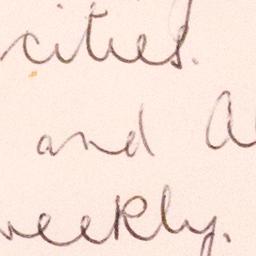 cities.
and A
weekly.